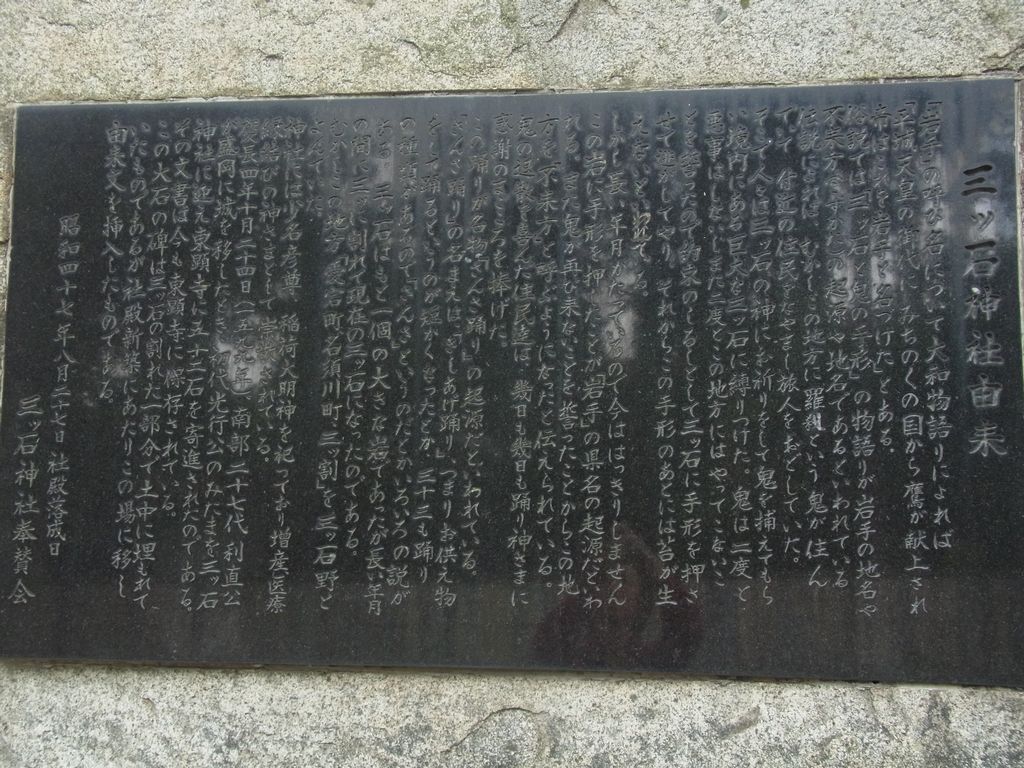 三ッ石神社由来
「岩手」の呼び名について大和物語りによれば
平城天皇の御代にみちのくの国から鷹が献上され
俗説では三ッ石と「鬼の手形」の物語りが岩手の地名や
不来方さんさおどりの起源や地名であるといわれている
伝説によれば むかしこの地方に羅刹という鬼が住ん
でいて 付近の住民をなやまし旅人をおどしていた。
そこで人々は三ッ石の神にお祈りをして鬼を捕えてもら
い境内にある巨大な三ッ石に縛りつけた。鬼は二度と
悪事はしないしまた二度とこの地方にはやってこないこ
とを誓ったので約束のしるしとして三ッ石に手形を押さ
せて逃がしてやりそれからこの手形のあとには苔が生
えないといわれて
しかし長い年月がたっているので今ははっきりしません
この岩に手形を押したことが「岩手」の県名の起源だといわ
れるまた鬼が再び来ないことを誓ったことからこの地
方を「不来方」と呼ぶようになったと伝えられている。
鬼の退散を喜んだ住民達は、幾日も幾日も踊り神さまに
感謝のまごころを捧げた。
この踊りが名物「さんさ踊り」の起源だといわれている。
さんさ踊りの名まえは「さしあげ踊り」つまりお供え物
をして踊るというのが短かくなったとか、三十三も踊り
の種類があるので「さんさ」というのだとかいろいろの説が
ある。三ッ石はもと一個の大きな岩であったが長い年月
の間に三ッに割れて現在の三ッ石になったのである。
むかしこの地方（愛宕町名須川町 三ッ割）を三ッ石野と
よんでいた。
神社には少名彦尊 稲荷大明神を祀っており 増産医療
縁結びの神さまとして崇敬されている。
慶長四年十月二十四日（一五九九年）南部二十七代利直公
が盛岡に城を移したとき 代光行公のみたまを三ッ石
神社に迎え東顕寺に五十二石を寄進されたのである。
その文書は今も東顕寺に保存されている。
この大石の碑は三ッ石の割れた一部分で土中に埋もれて
いたものであるが社殿新築にあたりこの場に移し
由来文を挿入したものである。
昭和四十七年八月二十七日 社殿落成日
三ッ石神社奉賛会